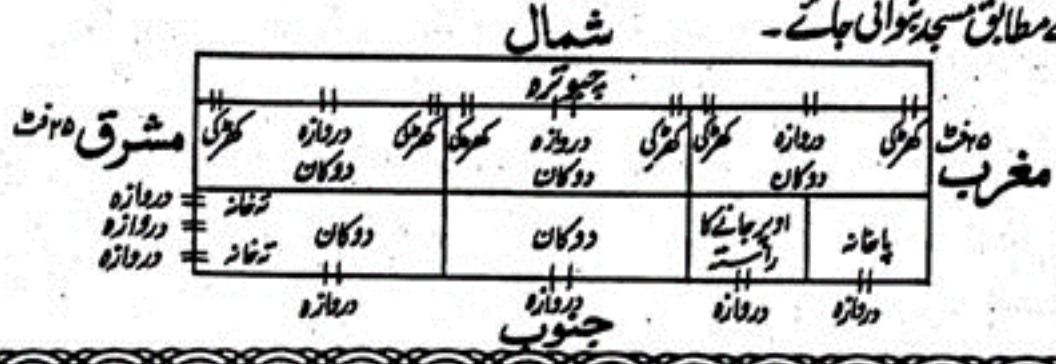 مطابق مسجد بنوائی جائے۔
شمال
چبوترہ
مشرق ۲۵ فٹ
کھڑکی دروازہ کھڑکی کھڑکی دروازہ کھڑکی کھڑکی دروازہ کھڑکی
۲۵ فٹ مغرب
دوکان دوکان دوکان
دروازہ
دروازہ
دروازہ
تہ خانہ
تہ خانہ
دوکان دوکان اوپر جانے کا راستہ پاخانہ
دروازہ دروازہ دروازہ دروازہ
جنوب